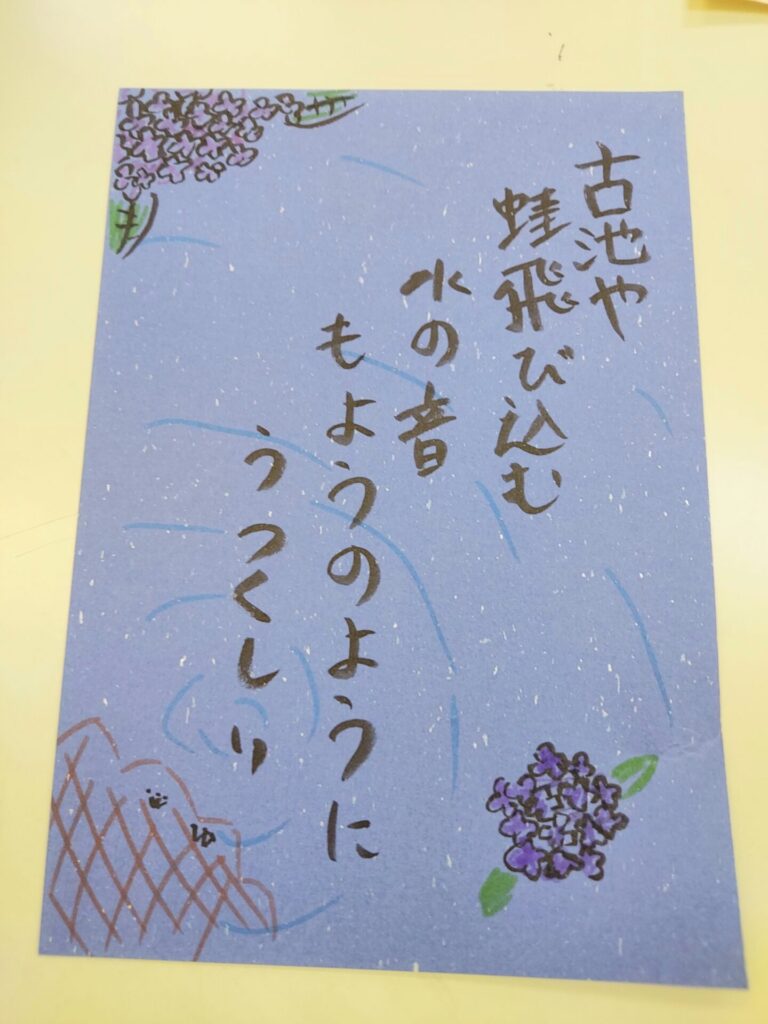 古池や
蛙飛び込む
水の音
もようのように
うつくしい